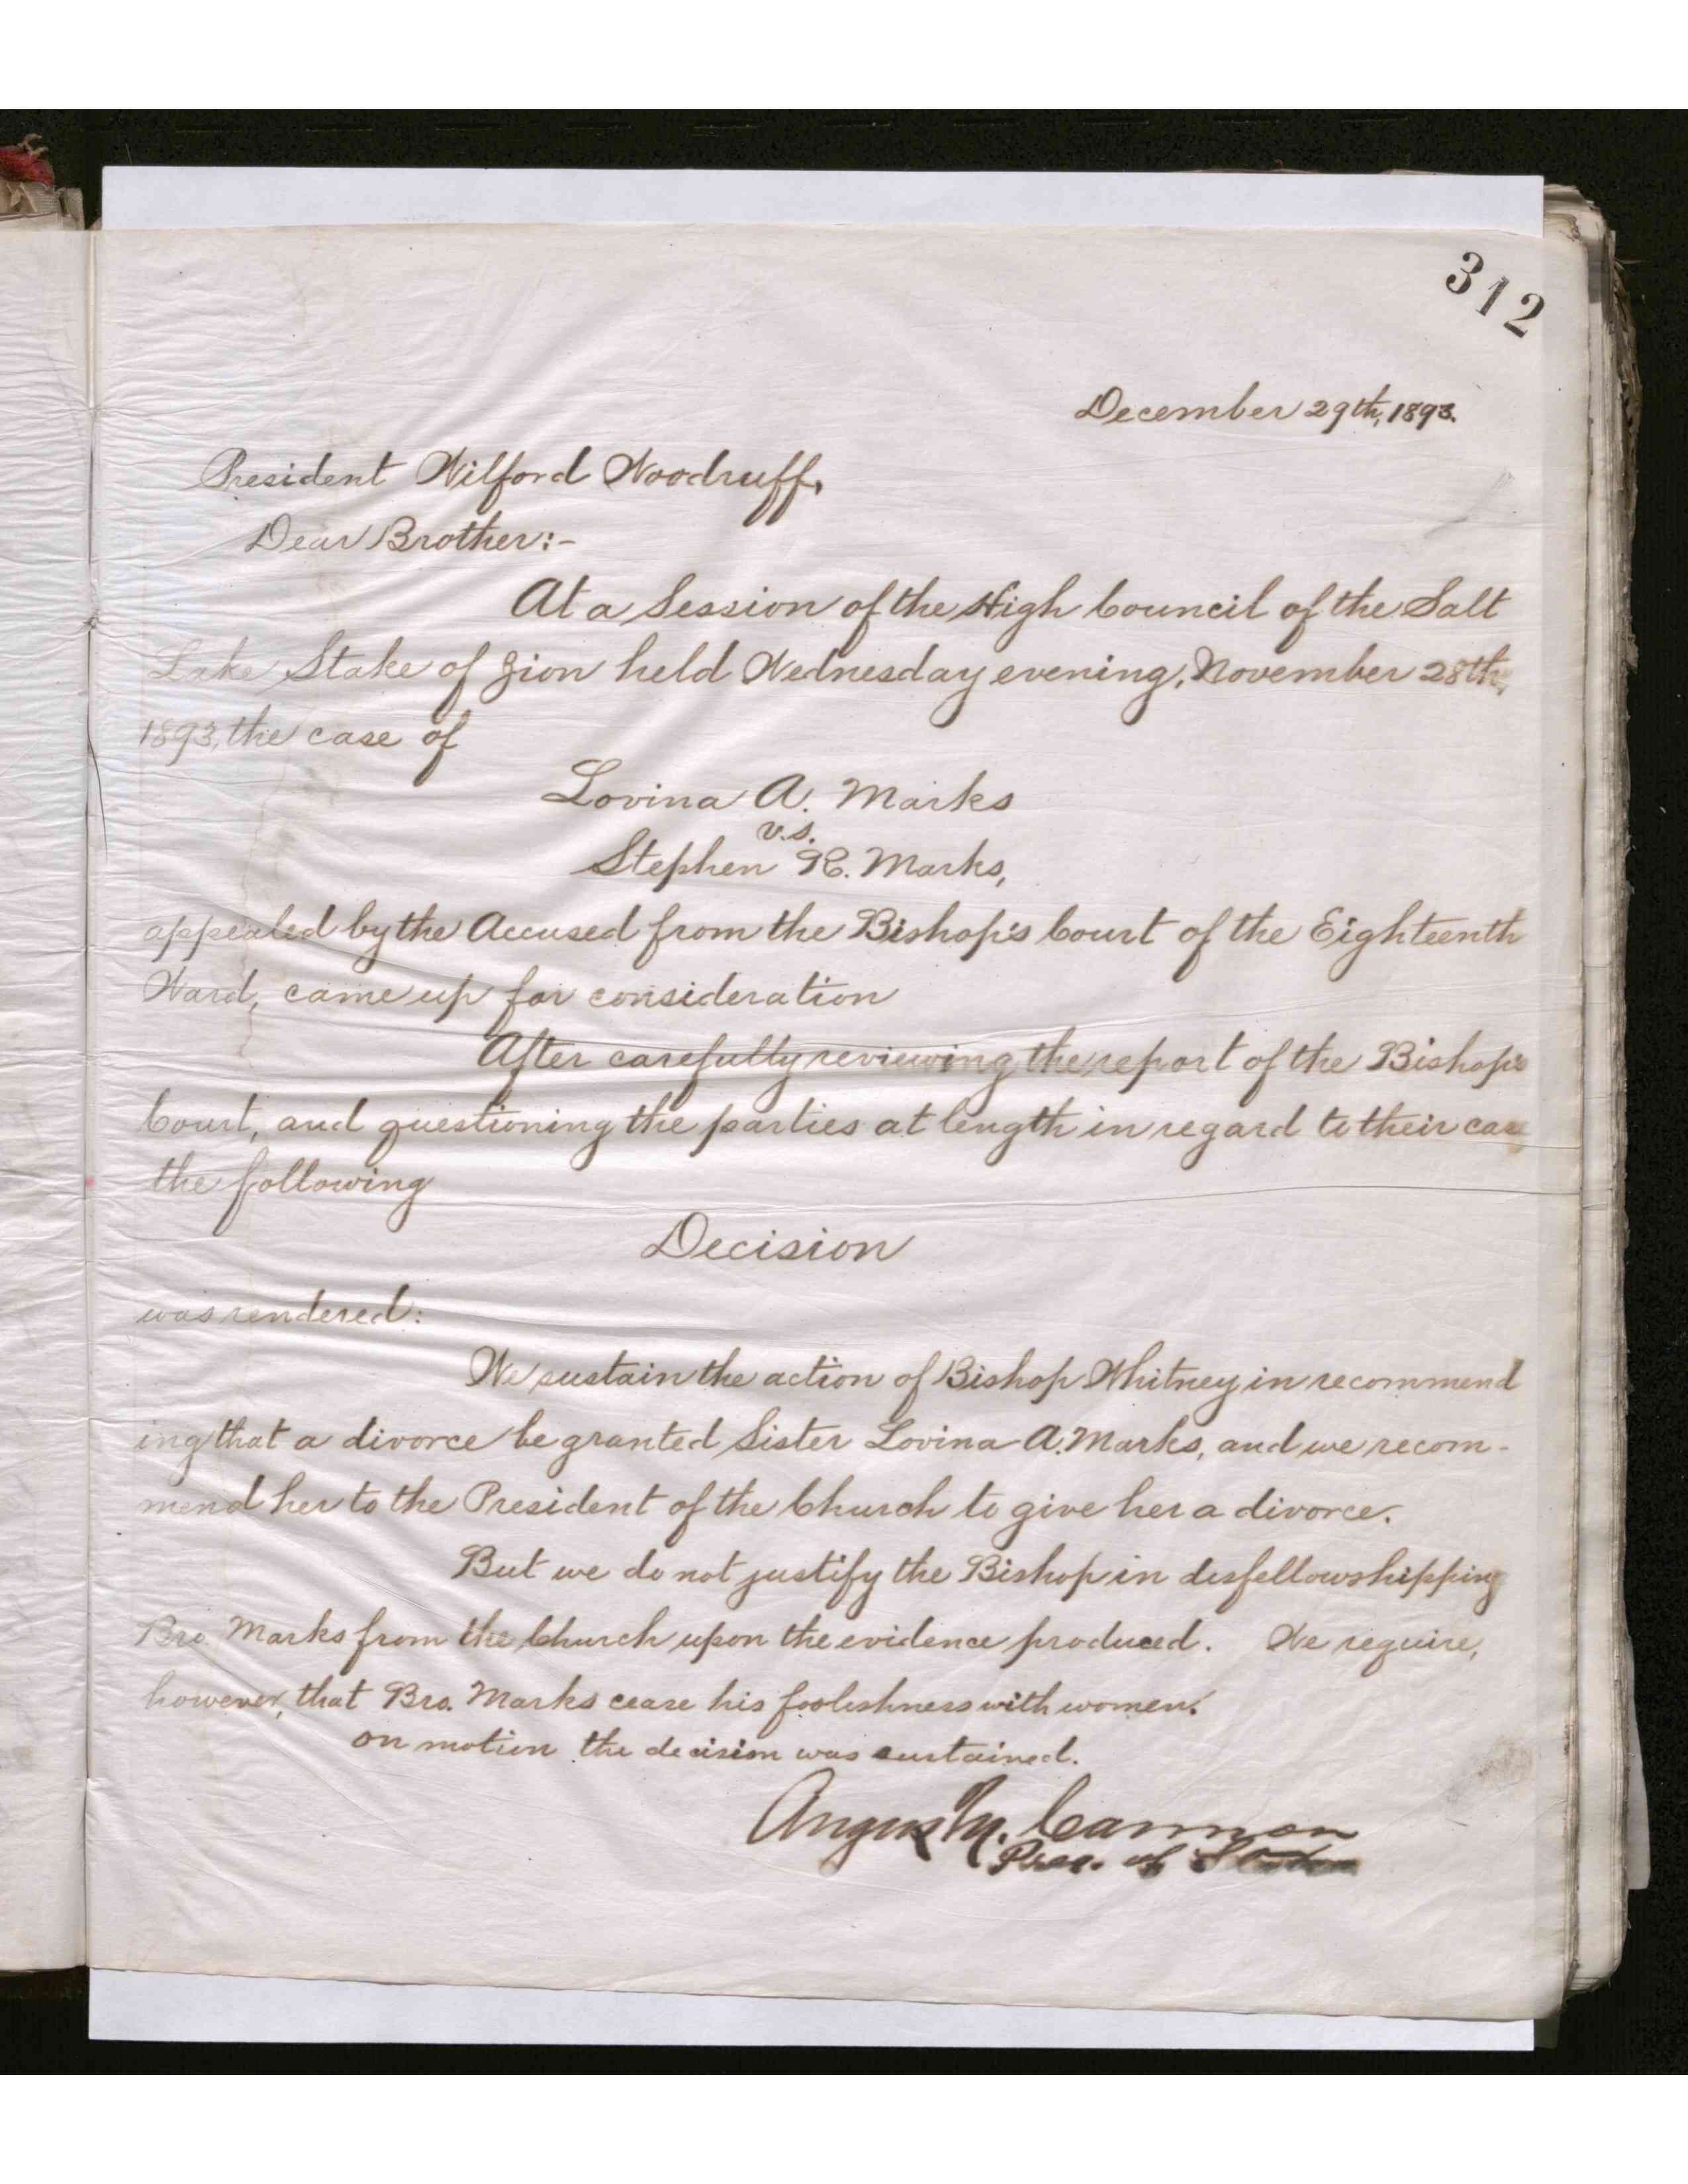 312
December 29th, 1893.
President Wilford Woodruff,
Dear Brother:-
At a Session of the High Council of the Salt
Lake Stake of Zion held Wednesday evening, November 28th,
1893, the case of
Lovina A. Marks
v.s.
Stephen R. Marks,
appealed by the Accused from the Bishop's Court of the Eighteenth
Ward, came up for consideration
After carefully reviewing the report of the Bishop's
Court, and questioning the parties at length in regard to their case
the following
Decision
was rendered:
We sustain the action of Bishop Whitney in recommend
ing that a divorce be granted Sister Lovina A. Marks, and we recom-
mend her to the President of the Church to give her a divorce.
But we do not justify the Bishop in disfellowshipping
Bro. Marks from the Church upon the evidence produced. We require,
however, that Bro. Marks cease his foolishness with women.
on motion the decision was sustained.
Angus M. Cannon
Pres. of Stake